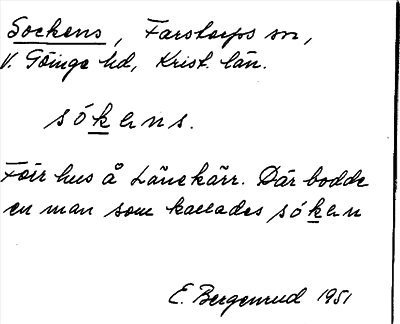 Sockens, Farstorps sn,
V. Göinge hd, Krist. län.
sókens.
Förr hus å Länekärr. Där bodde
en man som kallades sóken
E. Bergenrud 1951